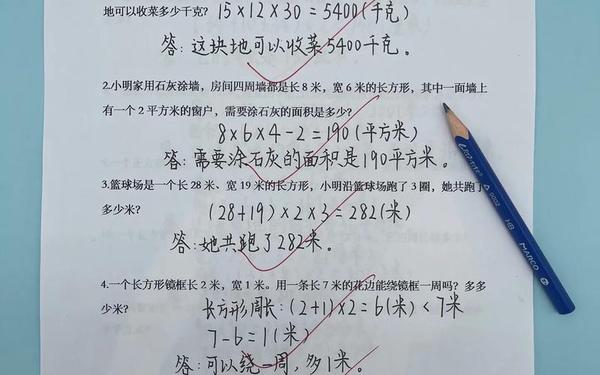 地可以收菜多少千克? 15×12×30=5400(千克)
答:这块地可以收菜5400千克。
2.小明家用石灰涂墙，房间四周墙都是长 8 米，宽 6 米的长方形，其中一面墙上
有一个 2 平方米的窗户，需要涂石灰的面积是多少?
8×6×4-2=190(平方米)
答:需要涂石灰的面积是190平方米。
3.篮球场是一个长 28 米、宽 19 米的长方形，小明沿篮球场跑了 3 圈，她共跑了
多少米? (28+19)×2×3=282(米)
答:她共跑了282米。
4.一个长方形镜框长 2 米，宽 1 米。用一条长 7 米的花边能绕镜框一周吗? 多多
少米? 长方形周长:(2+1)×2=6(米)<7米
7-6=1(米)
答:可以绕一周，多1米。
HB MARCO